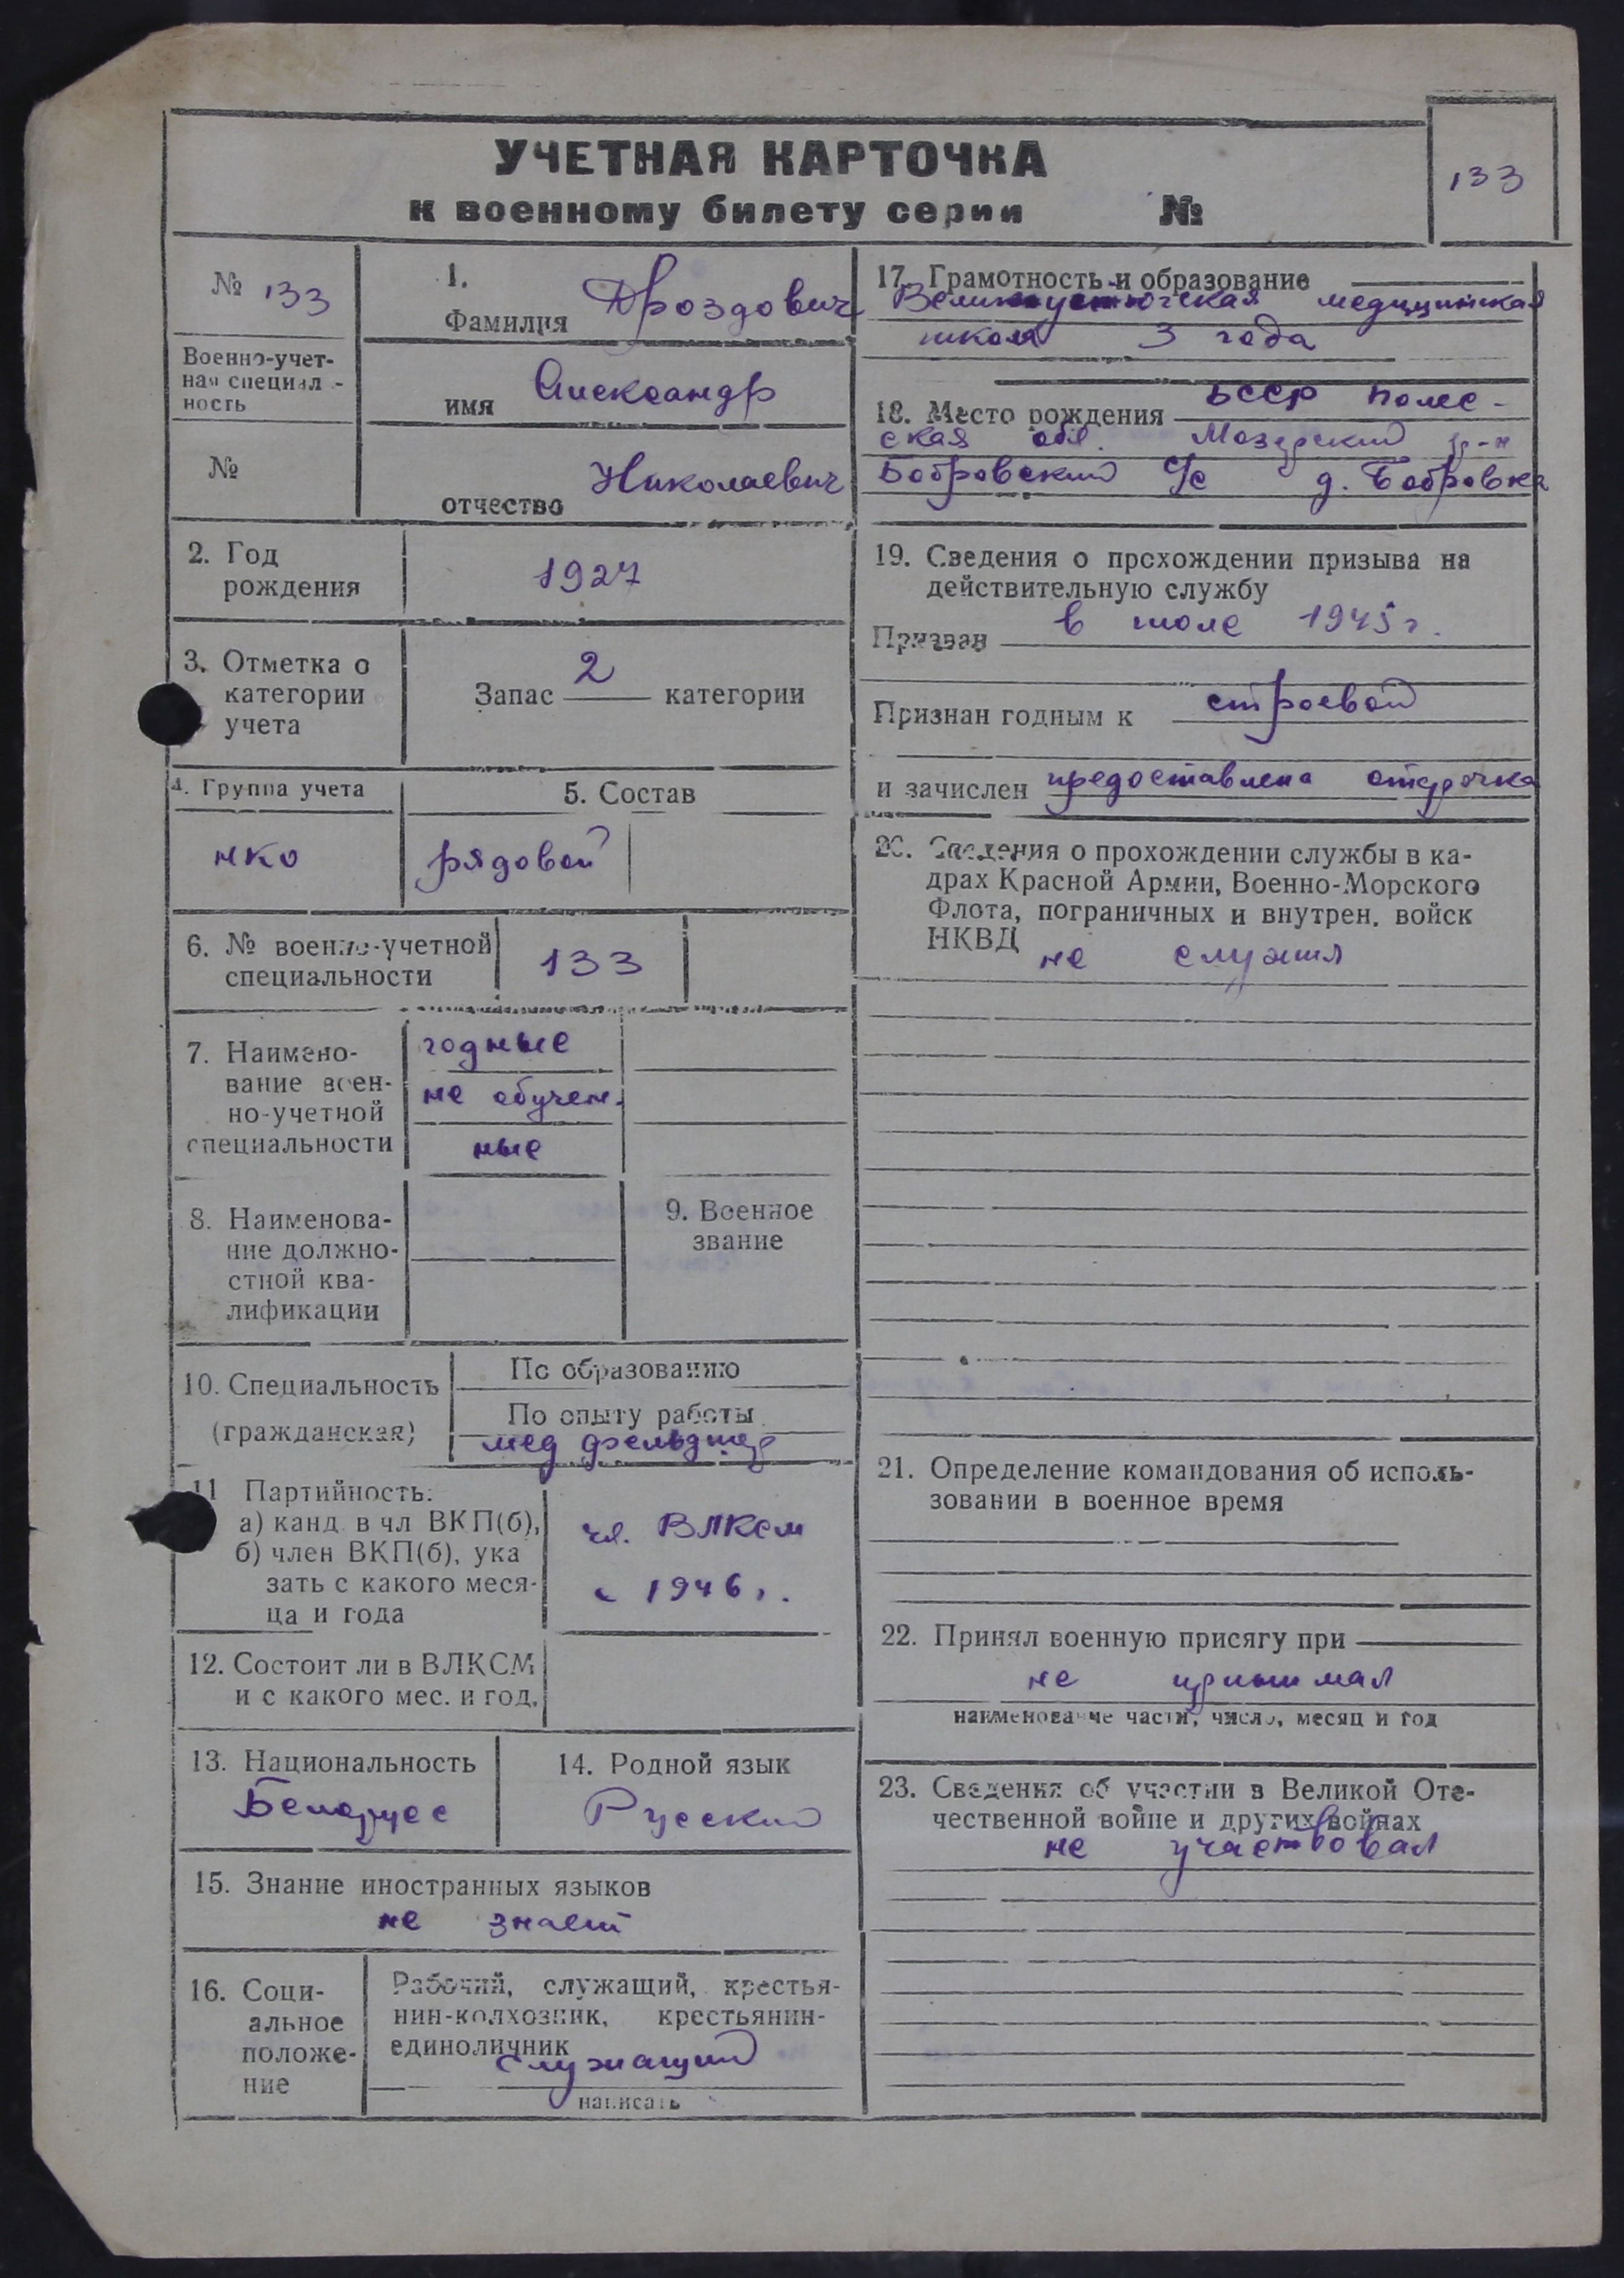 УЧЕТНАЯ КАРТОЧКА
к военному билету серии №
133
№ 133
Военно-учет-
ная специаль-
ность
№
1.
Фамилия Дроздович
имя Александр
отчество Николаевич
2. Год
рождения
1927
3. Отметка о
категории
учета
Запас 2 категории
4. Группа учета
нко
5. Состав
рядовой
6. № военно-учетной
специальности
133
7. Наимено-
вание воен-
но-учетной
специальности
годные
не обучен-
ные
8. Наименова-
ние должно-
стной ква-
лификации
9. Военное
звание
10. Специальность
(гражданская)
По образованию
По опыту работы
мед фельдшер
11 Партийность:
а) канд. в чл ВКП(б),
б) член ВКП(б), ука
зать с какого меся-
ца и года
чл. ВЛКСМ
с 1946 г.
12. Состоит ли в ВЛКСМ
и с какого мес. и год.
13. Национальность
Белорус
14. Родной язык
Русский
15. Знание иностранных языков
не знает
16. Соци-
альное
положе-
ние
Рабочий, служащий, крестья-
нин-колхозник, крестьянин-
единоличник
служащий
написать
17. Грамотность и образование
Великоустюгская медицинская
школа 3 года
18. Место рождения БССР Полес-
ская обл. Мозырский р-н
Бобровский с/с д. Бобровка
19. Сведения о прохождении призыва на
действительную службу
Призван в июле 1945 г.
Признан годным к строевой
и зачислен предоставлена отсрочка
20. Сведения о прохождении службы в ка-
драх Красной Армии, Военно-Морского
Флота, пограничных и внутрен. войск
НКВД
не служил
21. Определение командования об исполь-
зовании в военное время
22. Принял военную присягу при
не принимал
наименование части, число, месяц и год
23. Сведения об участии в Великой Оте-
чественной войне и других войнах
не участвовал